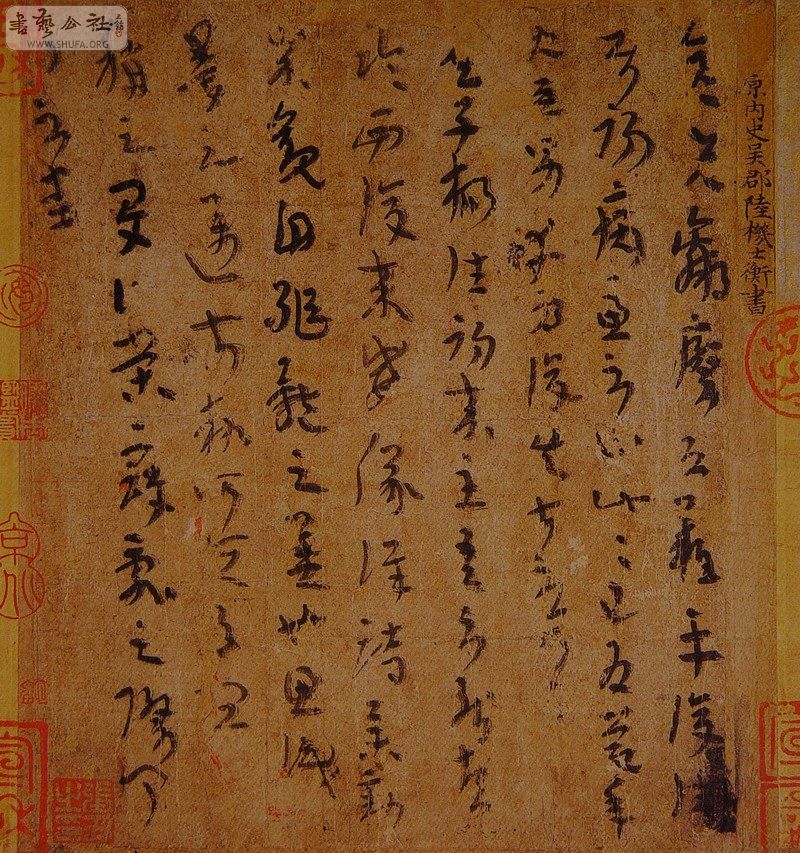 原内史吳郡陸機士衡書
彥先羸瘵恐難平復往
屬初病慮不止此此已為慶承
使唯男幸為復失前憂耳
吳子楊往初來主吾不能盡
臨西復來威儀詳跱舉動
成觀自軀體之美也思識
量之邁前執所恒有宜
稱之夏伯榮寇亂之際聞
問不悉
書藝公社
WWW.SHUFA.ORG